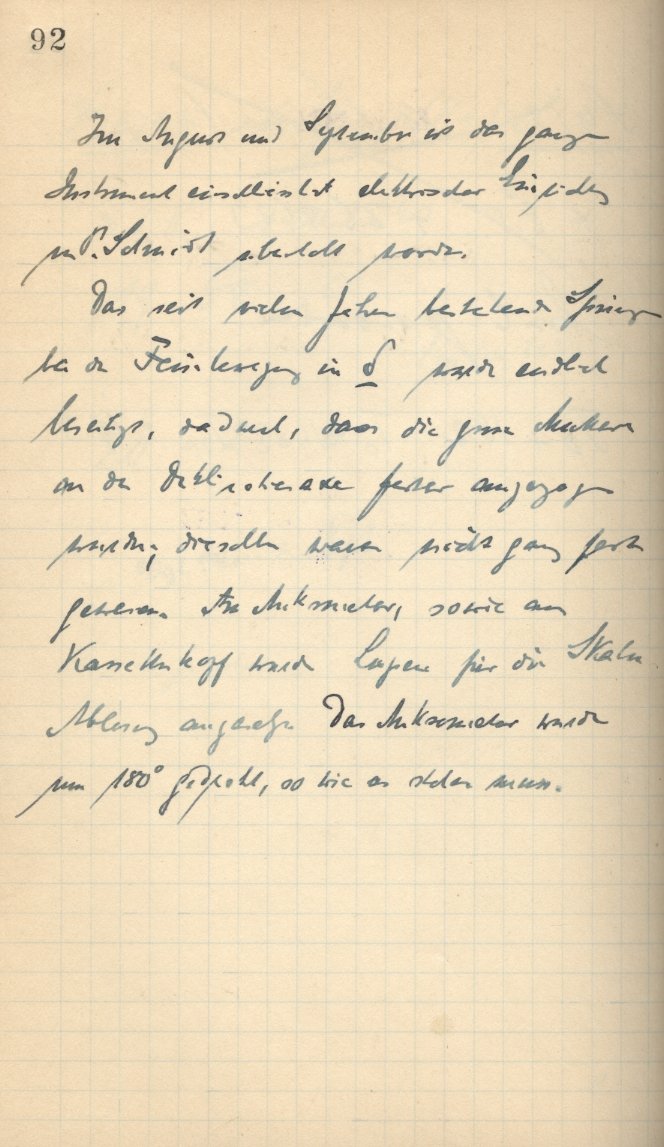 92
Im August und September ist das ganze
Instrument einschliesslich elektrischer Einrichtg
von P. Schmidt überholt worden.
Das seit vielen Jahren bestehende Springen
bei der Feinbewegung in δ wurde endlich
beseitigt, dadurch, dass die grosse Mutter
an der Deklinationsaxe fester angezogen
wurden; dieselben waren nicht ganz fest
gewesen. Am Mikrometer, sowie am
Kassettenkopf wurde Lupen für die Skalen
Ablesung angebracht. Das Mikrometer wurde
um 180° gedreht, so wie es stehen muss.